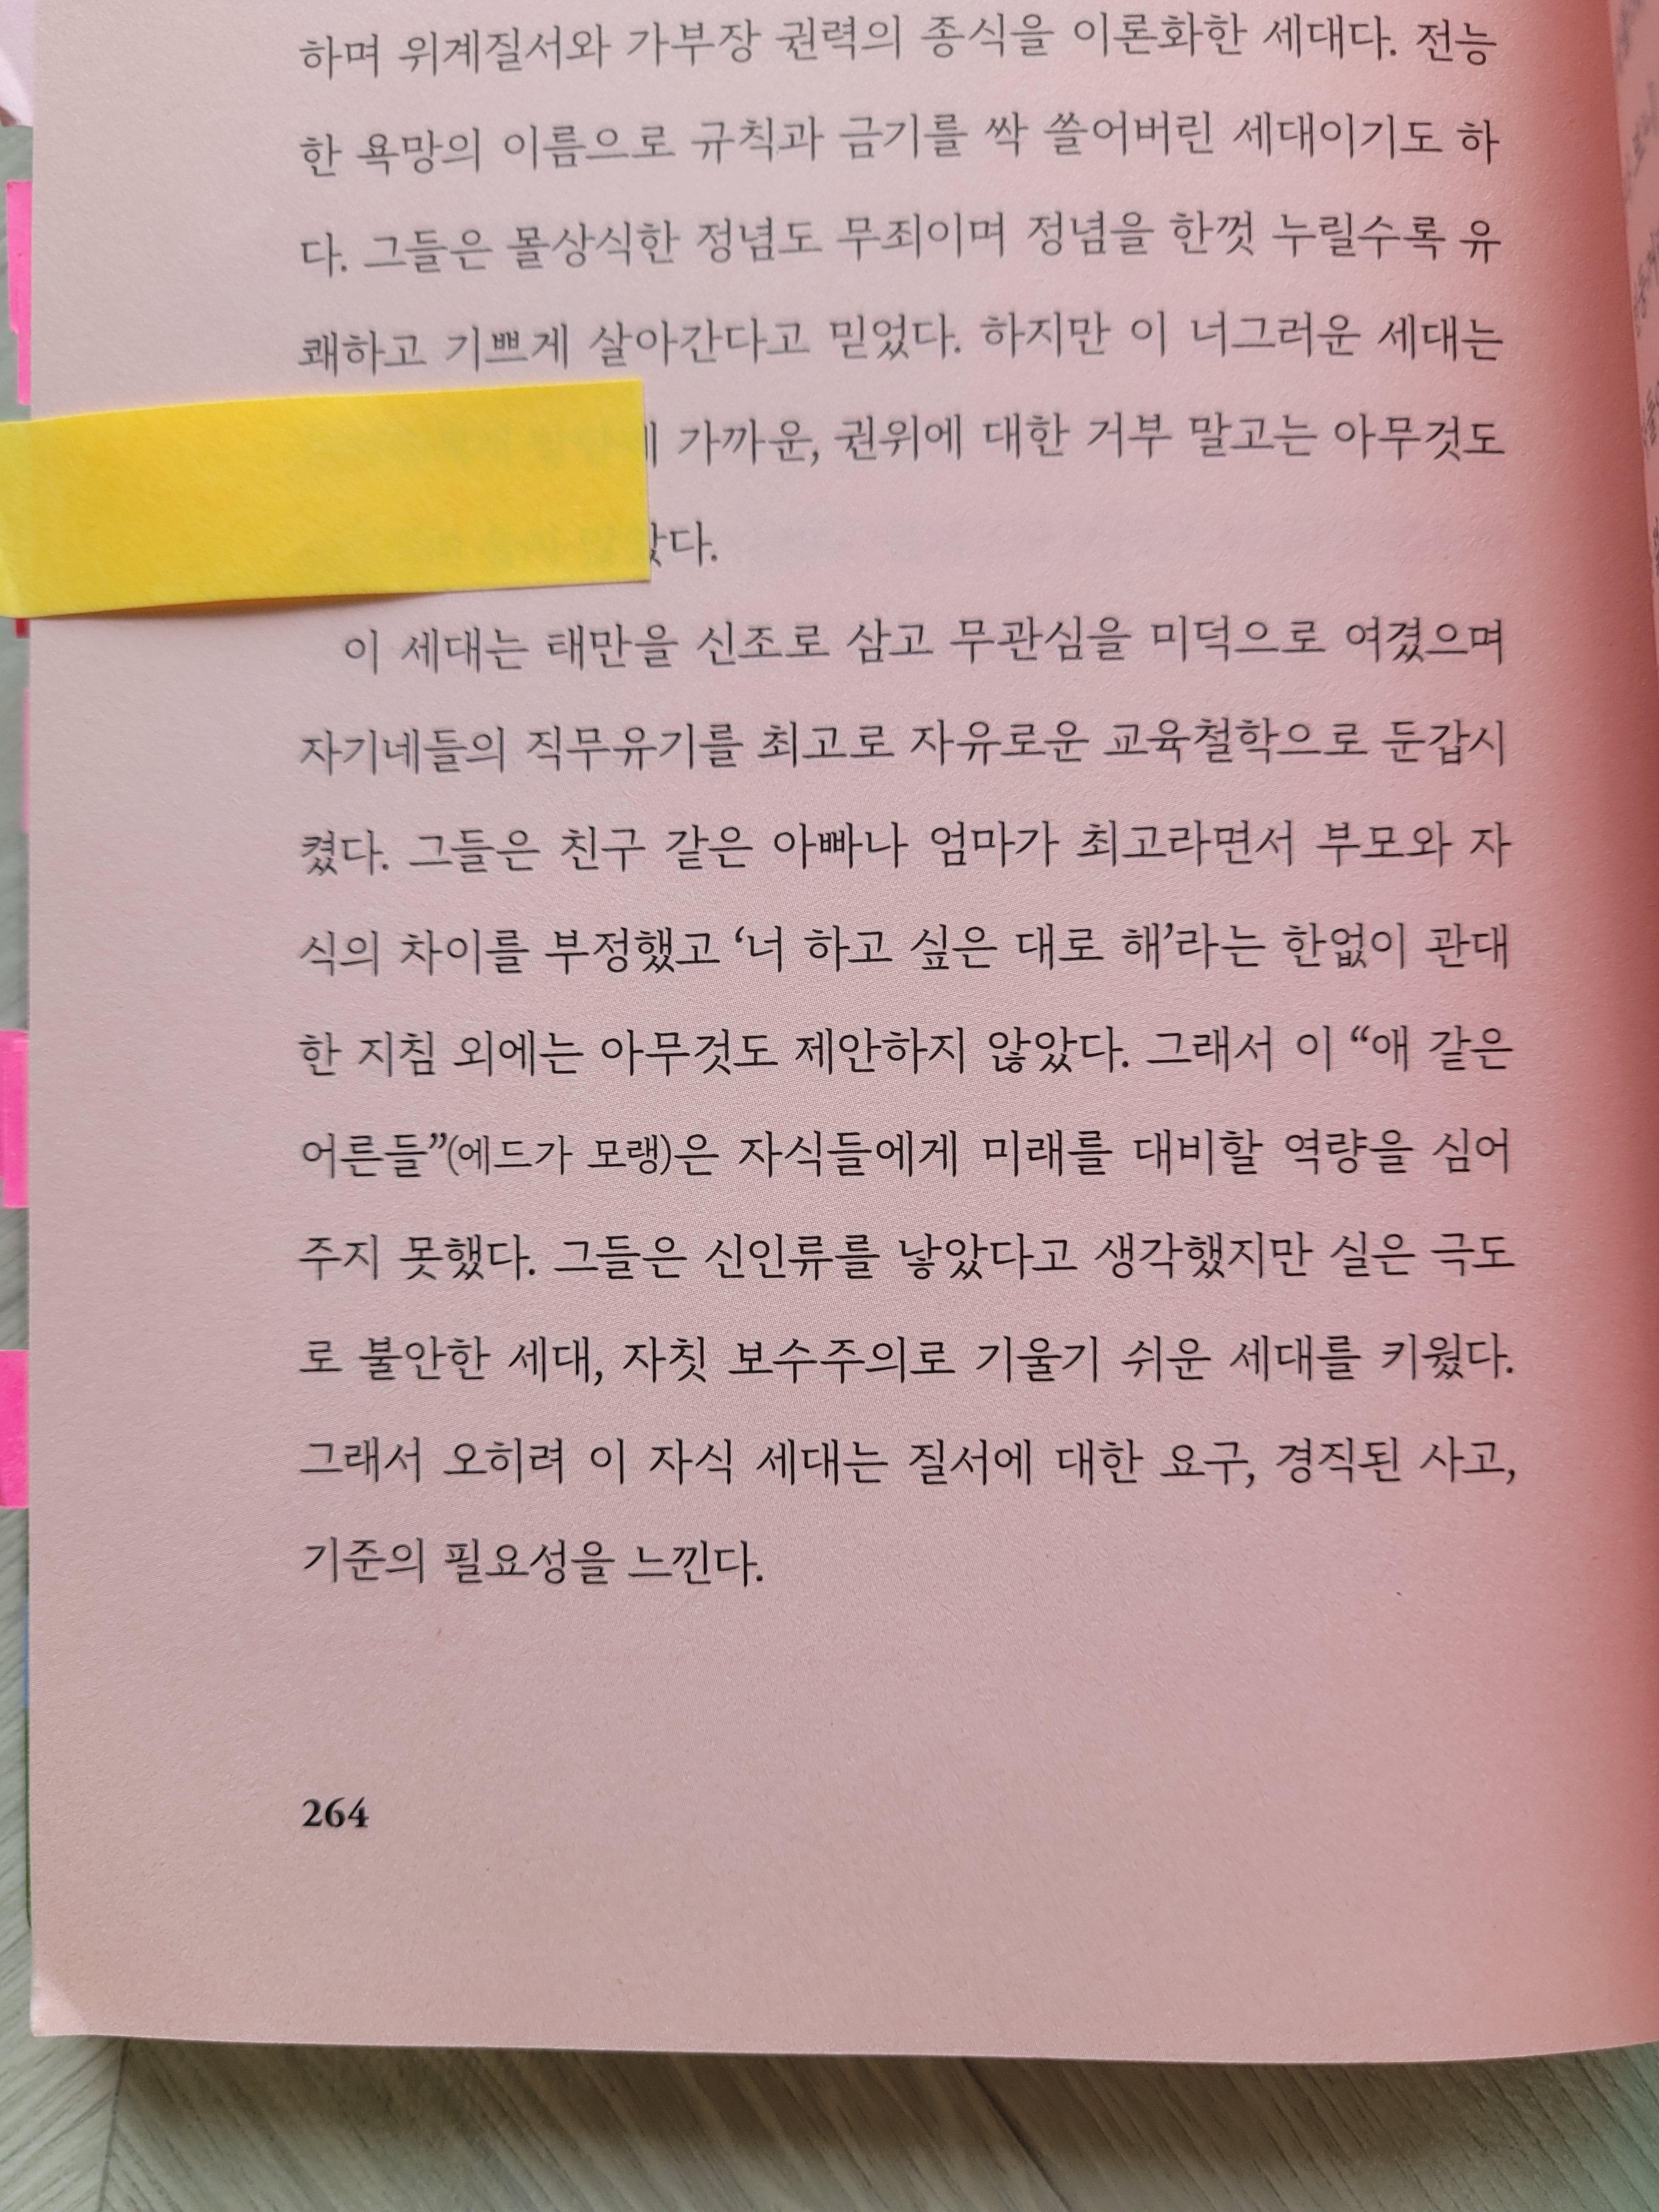 하며 위계질서와 가부장 권력의 종식을 이론화한 세대다. 전능
한 욕망의 이름으로 규칙과 금기를 싹 쓸어버린 세대이기도 하
다. 그들은 몰상식한 정념도 무죄이며 정념을 한껏 누릴수록 유
쾌하고 기쁘게 살아간다고 믿었다. 하지만 이 너그러운 세대는
가까운, 권위에 대한 거부 말고는 아무것도
이 세대는 태만을 신조로 삼고 무관심을 미덕으로 여겼으며
자기네들의 직무유기를 최고로 자유로운 교육철학으로 둔갑시
켰다. 그들은 친구 같은 아빠나 엄마가 최고라면서 부모와 자
식의 차이를 부정했고 ‘너 하고 싶은 대로 해’라는 한없이 관대
한 지침 외에는 아무것도 제안하지 않았다. 그래서 이 “애 같은
어른들”(에드가 모랭)은 자식들에게 미래를 대비할 역량을 심어
주지 못했다. 그들은 신인류를 낳았다고 생각했지만 실은 극도
로 불안한 세대, 자칫 보수주의로 기울기 쉬운 세대를 키웠다.
그래서 오히려 이 자식 세대는 질서에 대한 요구, 경직된 사고,
기준의 필요성을 느낀다.
264